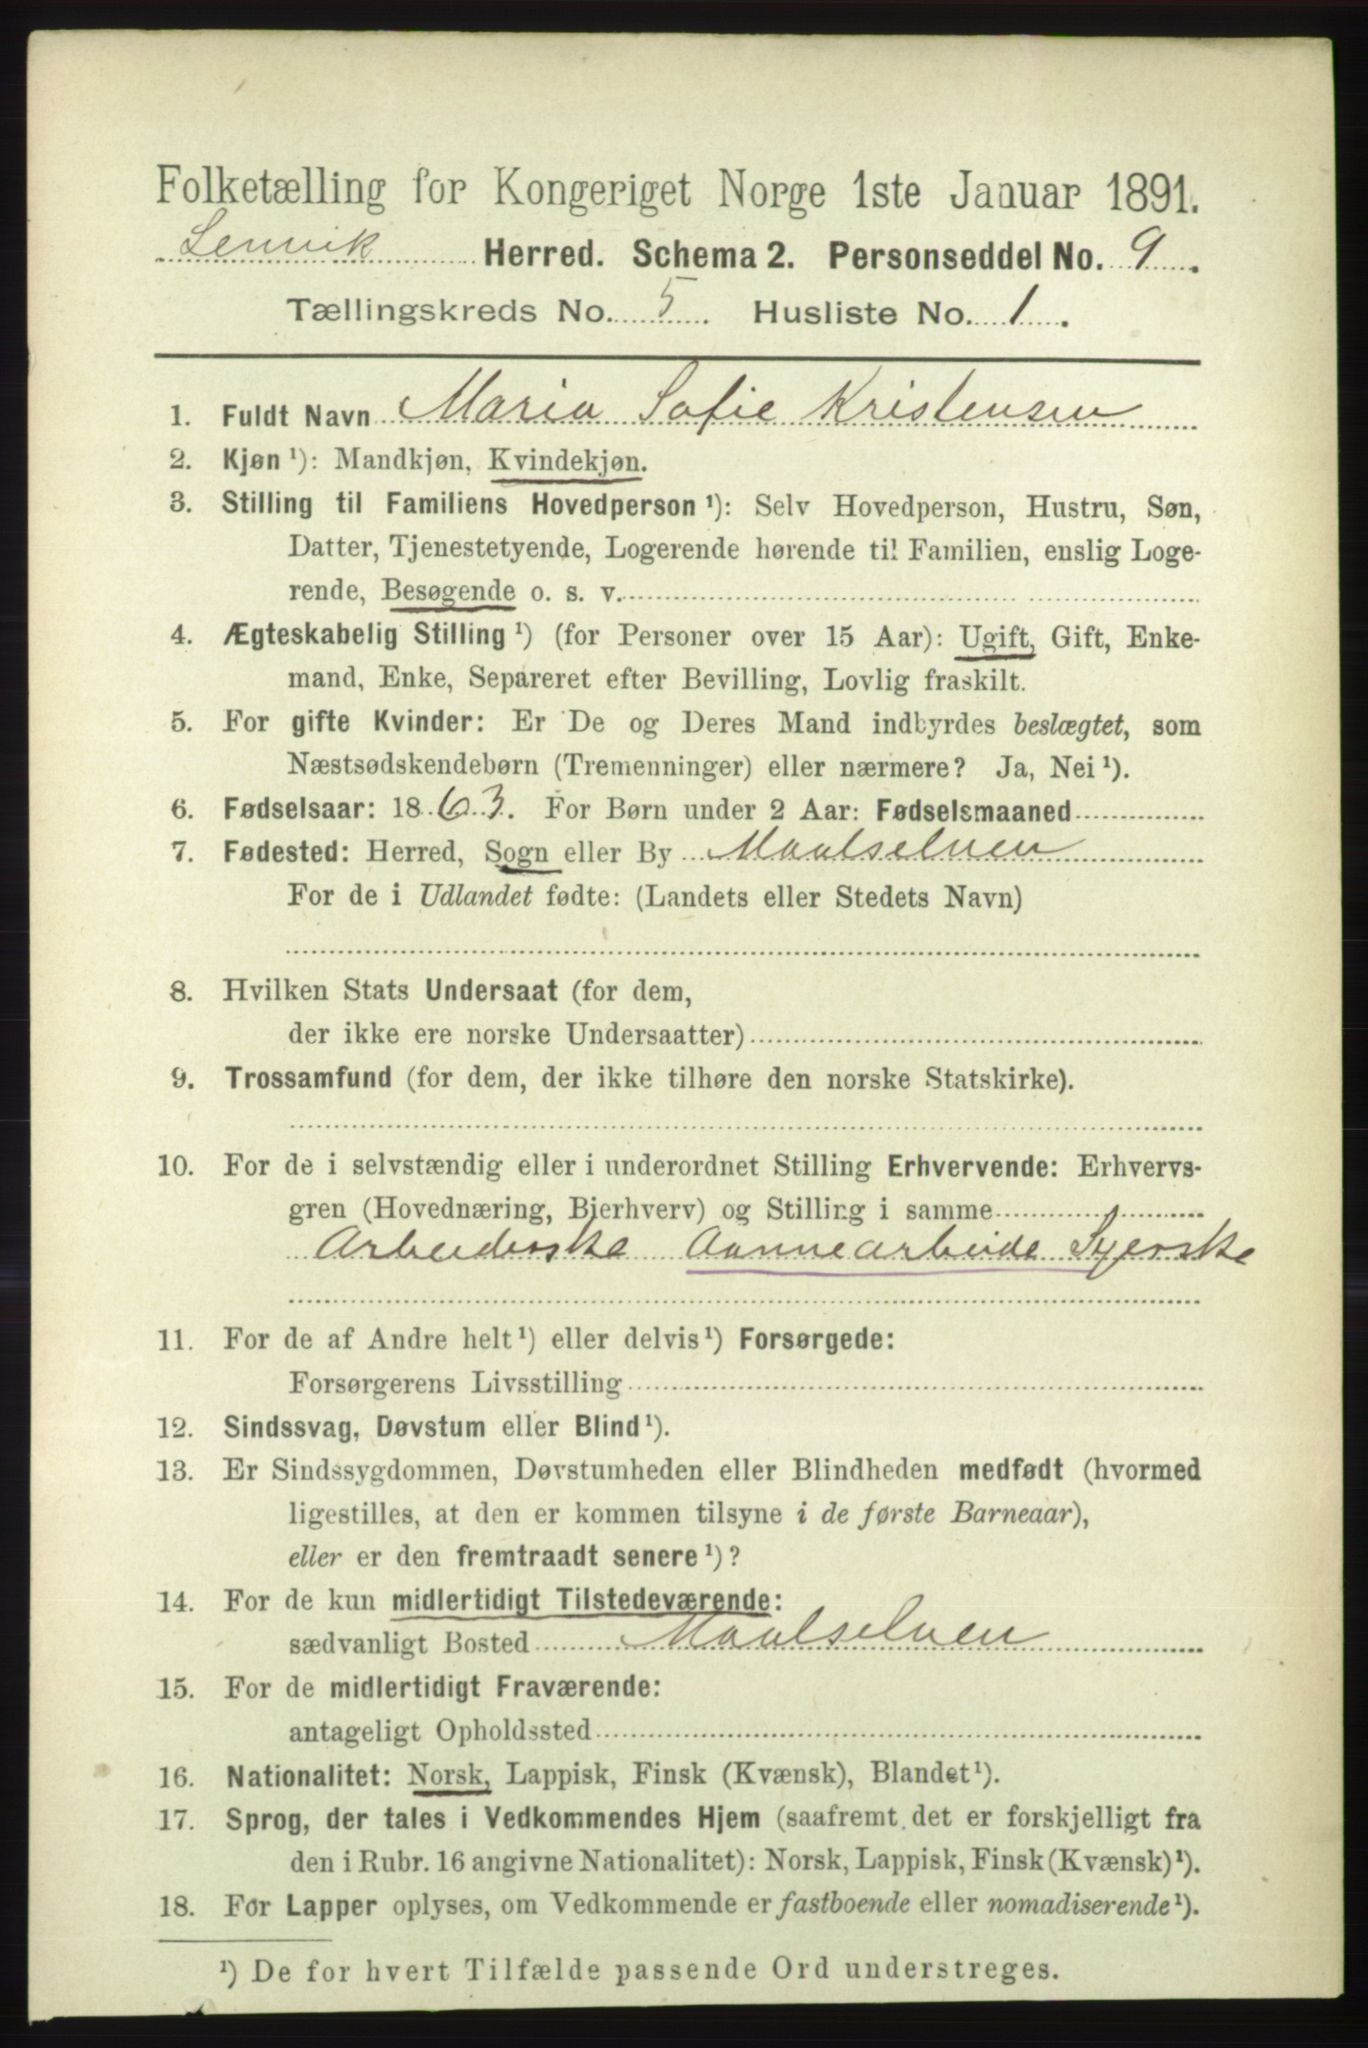 Folketælling for Kongeriget Norge 1ste Januar 1891.
Lenvik Herred. Schema 2. Personseddel No. 9.
Tællingskreds No. 5. Husliste No. 1.
1. Fuldt Navn Maria Sofie Kristensen
2. Kjøn ¹): Mandkjøn, Kvindekjøn.
3. Stilling til Familiens Hovedperson ¹): Selv Hovedperson, Hustru, Søn,
Datter, Tjenestetyende, Logerende hørende til Familien, enslig Loge-
rende, Besøgende o. s. v.
4. Ægteskabelig Stilling ¹) (for Personer over 15 Aar): Ugift, Gift, Enke-
mand, Enke, Separeret efter Bevilling, Lovlig fraskilt.
5. For gifte Kvinder: Er De og Deres Mand indbyrdes beslægtet, som
Næstsødskendebørn (Tremenninger) eller nærmere? Ja, Nei ¹).
6. Fødselsaar: 1863. For Børn under 2 Aar: Fødselsmaaned
7. Fødested: Herred, Sogn eller By Maalselven
For de i Udlandet fødte: (Landets eller Stedets Navn)
8. Hvilken Stats Undersaat (for dem,
der ikke ere norske Undersaatter)
9. Trossamfund (for dem, der ikke tilhøre den norske Statskirke).
10. For de i selvstændig eller i underordnet Stilling Erhvervende: Erhvervs-
gren (Hovednæring, Bierhverv) og Stilling i samme
Arbeiderske Aannearbeide Syerske
11. For de af Andre helt ¹) eller delvis ¹) Forsørgede:
Forsørgerens Livsstilling
12. Sindssvag, Døvstum eller Blind ¹).
13. Er Sindssygdommen, Døvstumheden eller Blindheden medfødt (hvormed
ligestilles, at den er kommen tilsyne i de første Barneaar),
eller er den fremtraadt senere ¹)?
14. For de kun midlertidigt Tilstedeværende:
sædvanligt Bosted Maalselven
15. For de midlertidigt Fraværende:
antageligt Opholdssted
16. Nationalitet: Norsk, Lappisk, Finsk (Kvænsk), Blandet ¹).
17. Sprog, der tales i Vedkommendes Hjem (saafremt det er forskjelligt fra
den i Rubr. 16 angivne Nationalitet): Norsk, Lappisk, Finsk (Kvænsk) ¹).
18. For Lapper oplyses, om Vedkommende er fastboende eller nomadiserende ¹).
¹) De for hvert Tilfælde passende Ord understreges.